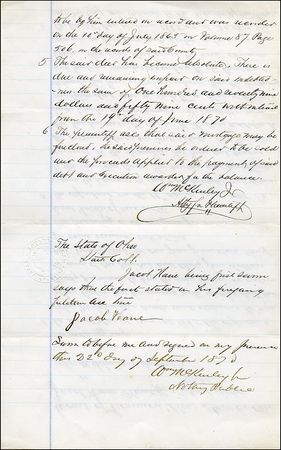 to be by him entered on record and was recorded
on the 10th day of July 1865 in Volume 87 Page
506 in the records of said County.
5 The said deed has become absolute. There is
due and remaining unpaid on said indebted-
ness the sum of One Hundred and seventy nine
dollars and fifty nine cents with interest
from the 19th day of June 1870
6 The plaintiff asks that said mortgage may be
, the said premises be ordered to be sold
and the proceeds applied to the payment of said
debt and execution awarded for the balance.
Wm McKinley Jr
Atty for Plaintiff
The State of Ohio
Stark Co ss.
Jacob Kane being first sworn
says that the facts stated in his foregoing
petition are true
Jacob Kane
Sworn to before me and signed in my presence
this 22d day of September 1870
Wm McKinley Jr
Notary Public